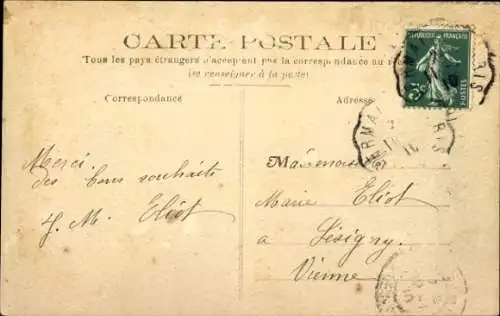 CARTE POSTALE
Tous les pays étrangers n'acceptent pas la correspondance au
(se renseigner à la poste)
Correspondance
Adresse
REPUBLIQUE FRANÇAISE
POSTES
Merci
des bons souhaits
Y. M. Eliot
Mademoiselle
Marie Eliot
a Lésigny
Vienne